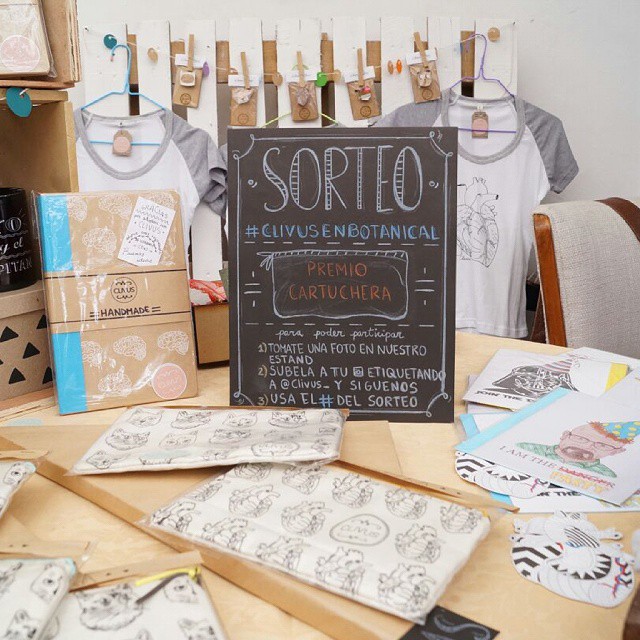 SORTEO
#CLIVUSENBOTANICAL
PREMIO
CARTUCHERA
para poder participar
1) TOMATE UNA FOTO EN NUESTRO
ESTAND
2) SUBELA A TU ETIQUETANDO
A @CLIVUS_ Y SIGUENOS
3) USA EL # DEL SORTEO
CLIVUS
=HANDMADE=
JOIN THE
I AM THE